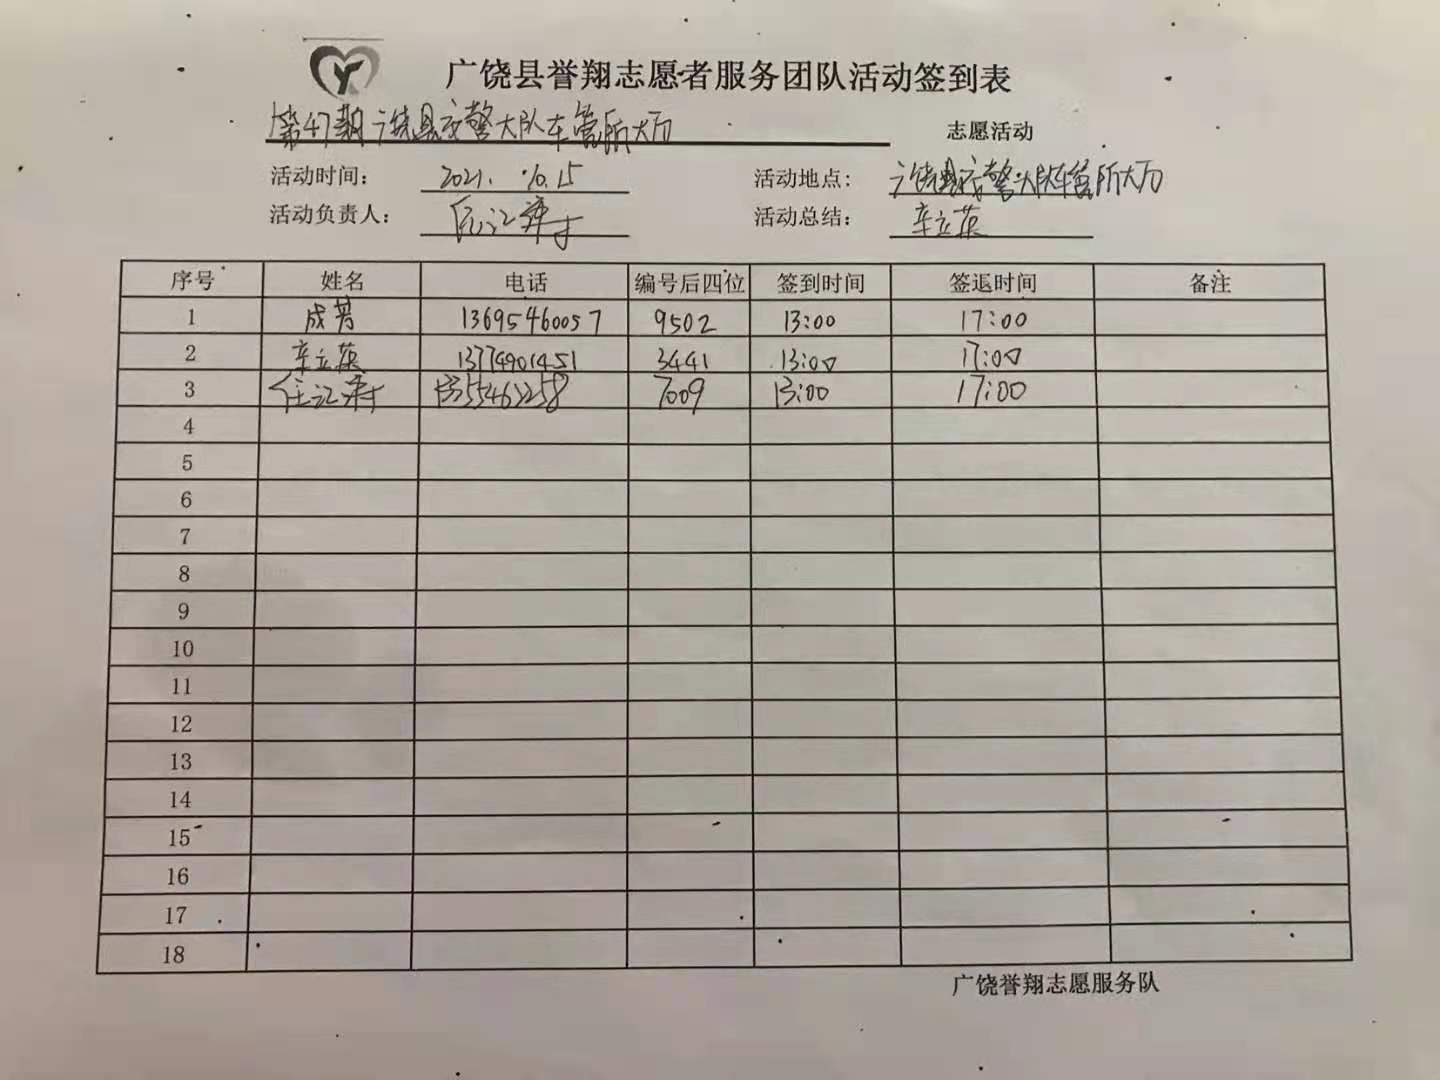 广饶县誉翔志愿者服务团队活动签到表
第47期广饶县交警大队车管所大厅 志愿活动
活动时间： 2021. 10.15 活动地点: 广饶县交警大队车管所大厅
活动负责人： 活动总结： 辛立英
序号 姓名 电话 编号后四位 签到时间 签退时间 备注
1 成芳 13695460057 9502 13:00 17:00
2 辛立英 13774901451 3441 13:00 17:00
3 7009 13:00 17:00
4
5
6
7
8
9
10
11
12
13
14
15
16
17
18
广饶誉翔志愿服务队